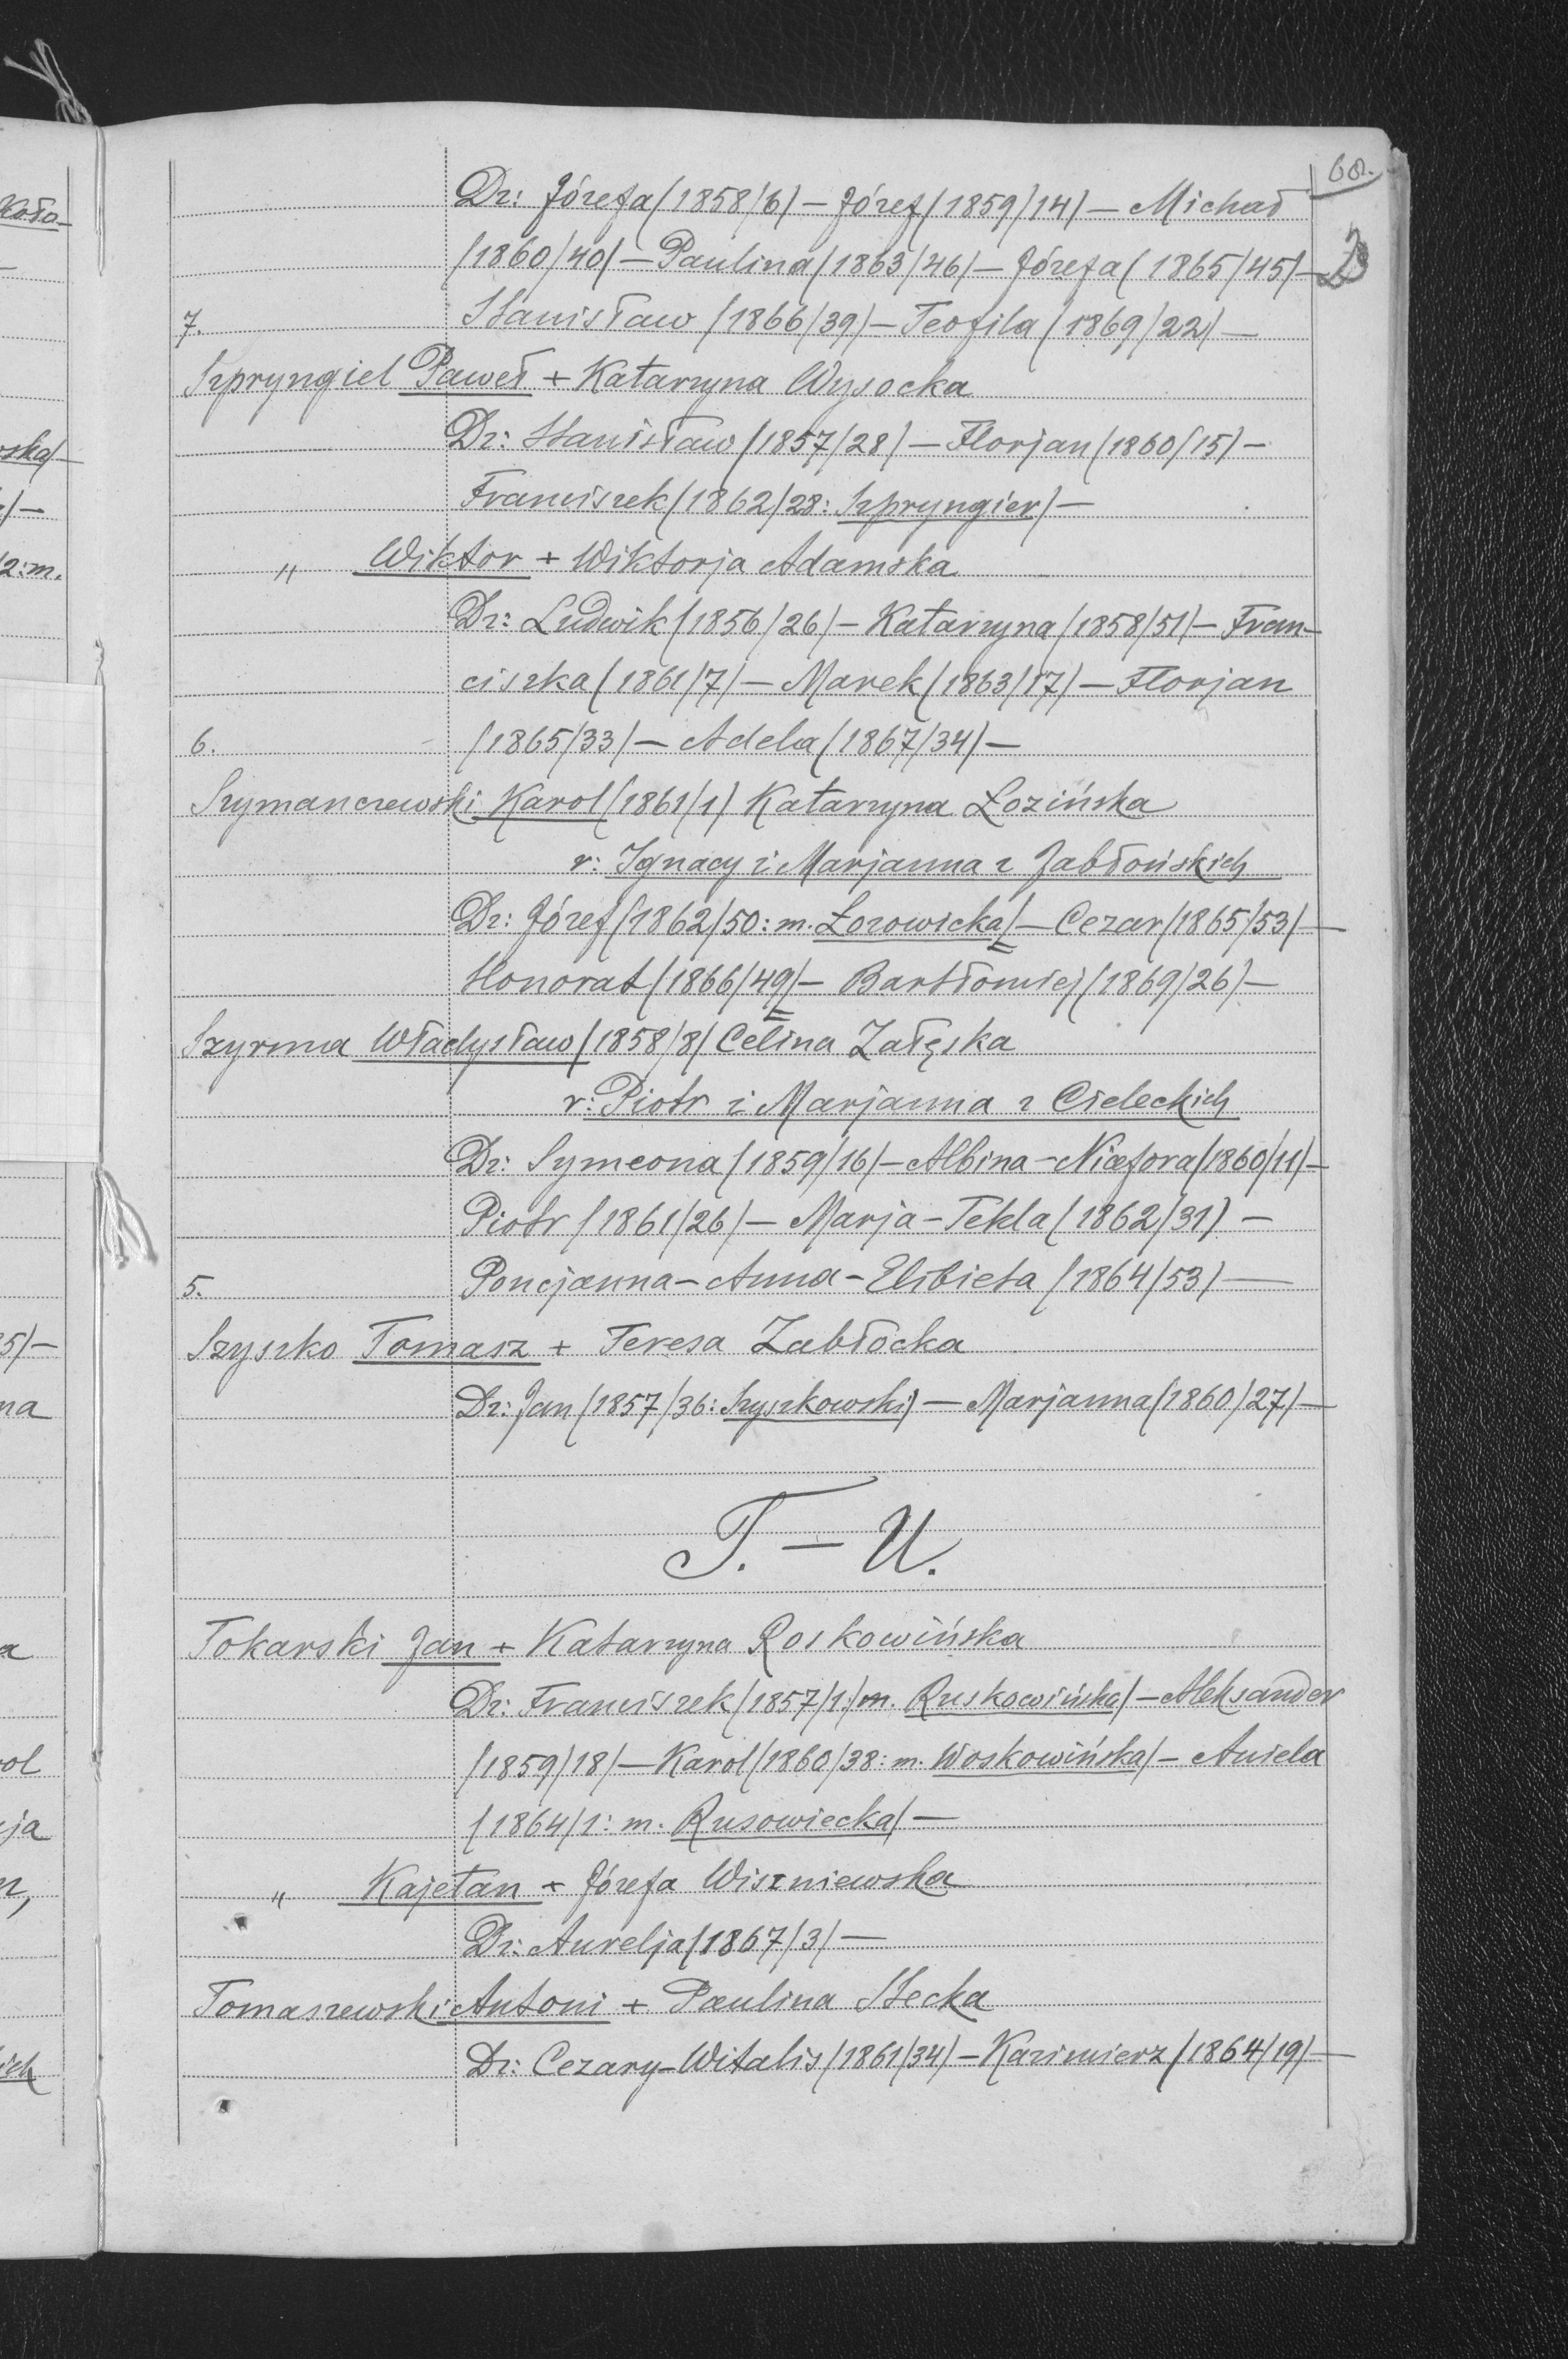 68.
Dz: Józefa (1858/6) — Józef (1859/14) — Michał
(1860/40) — Paulina (1863/46) — Józefa (1865/45) —
7. Stanisław (1866/39) — Teofila (1869/22) —
Szpryngiel Paweł + Katarzyna Wysocka
Dz: Stanisław (1857/28) — Florjan (1860/15) —
Franciszek (1862/28: Szpryngier) —
" Wiktor + Wiktorja Adamska
Dz: Ludwik (1856/26) — Katarzyna (1858/51) — Fran-
ciszka (1861/7) — Marek (1863/17) — Florjan
6. (1865/33) — Adela (1867/34) —
Szymanczewski Karol (1861/1) Katarzyna Łozińska
r: Ignacy i Marjanna z Jabłońskich
Dz: Józef (1862/50: m. Łozowicka) — Cezar (1865/53) —
Honorat (1866/49) — Bartłomiej (1869/26) —
Szyrma Władysław (1858/8) Celina Załęska
r: Piotr i Marjanna z Cieleckich
Dz: Symeona (1859/16) — Albina-Nicefora (1860/11) —
Piotr (1861/26) — Marja-Tekla (1862/31) —
5. Poncjanna-Anna-Elżbieta (1864/53) —
Szyszko Tomasz + Teresa Zabłocka
Dz: Jan (1857/36: Szyszkowski) — Marjanna (1860/27) —
T. — U.
Tokarski Jan + Katarzyna Roskowińska
Dz: Franciszek (1857/1:) m. Ruskowińska) — Aleksander
(1859/18) — Karol (1860/38: m. Woskowińska) — Aniela
(1864/1: m. Rusowiecka) —
" Kajetan + Józefa Wiszniewska
Dz: Aurelja (1867/3) —
Tomaszewski Antoni + Paulina Stecka
Dz: Cezary-Witalis (1861/34) — Kazimierz (1864/19) —